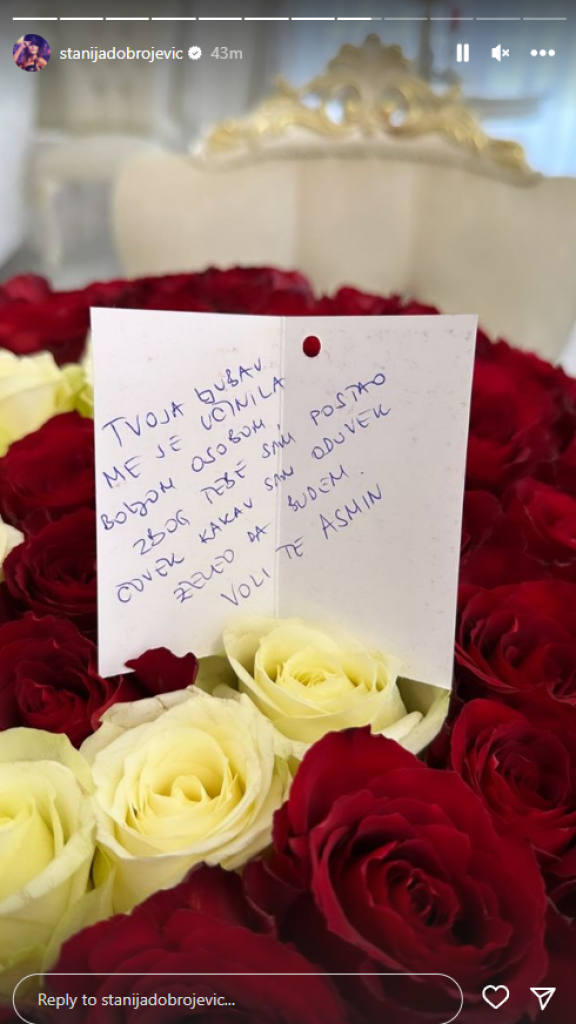 stanijadobrojevic 43m
TVOJA LJUBAV
ME JE UČINILA
BOLJOM OSOBOM I
ZBOG TEBE SAM POSTAO
ČOVEK KAKAV SAM ODUVEK
ŽELEO DA BUDEM.
VOLI TE ASMIN
Reply to stanijadobrojevic...